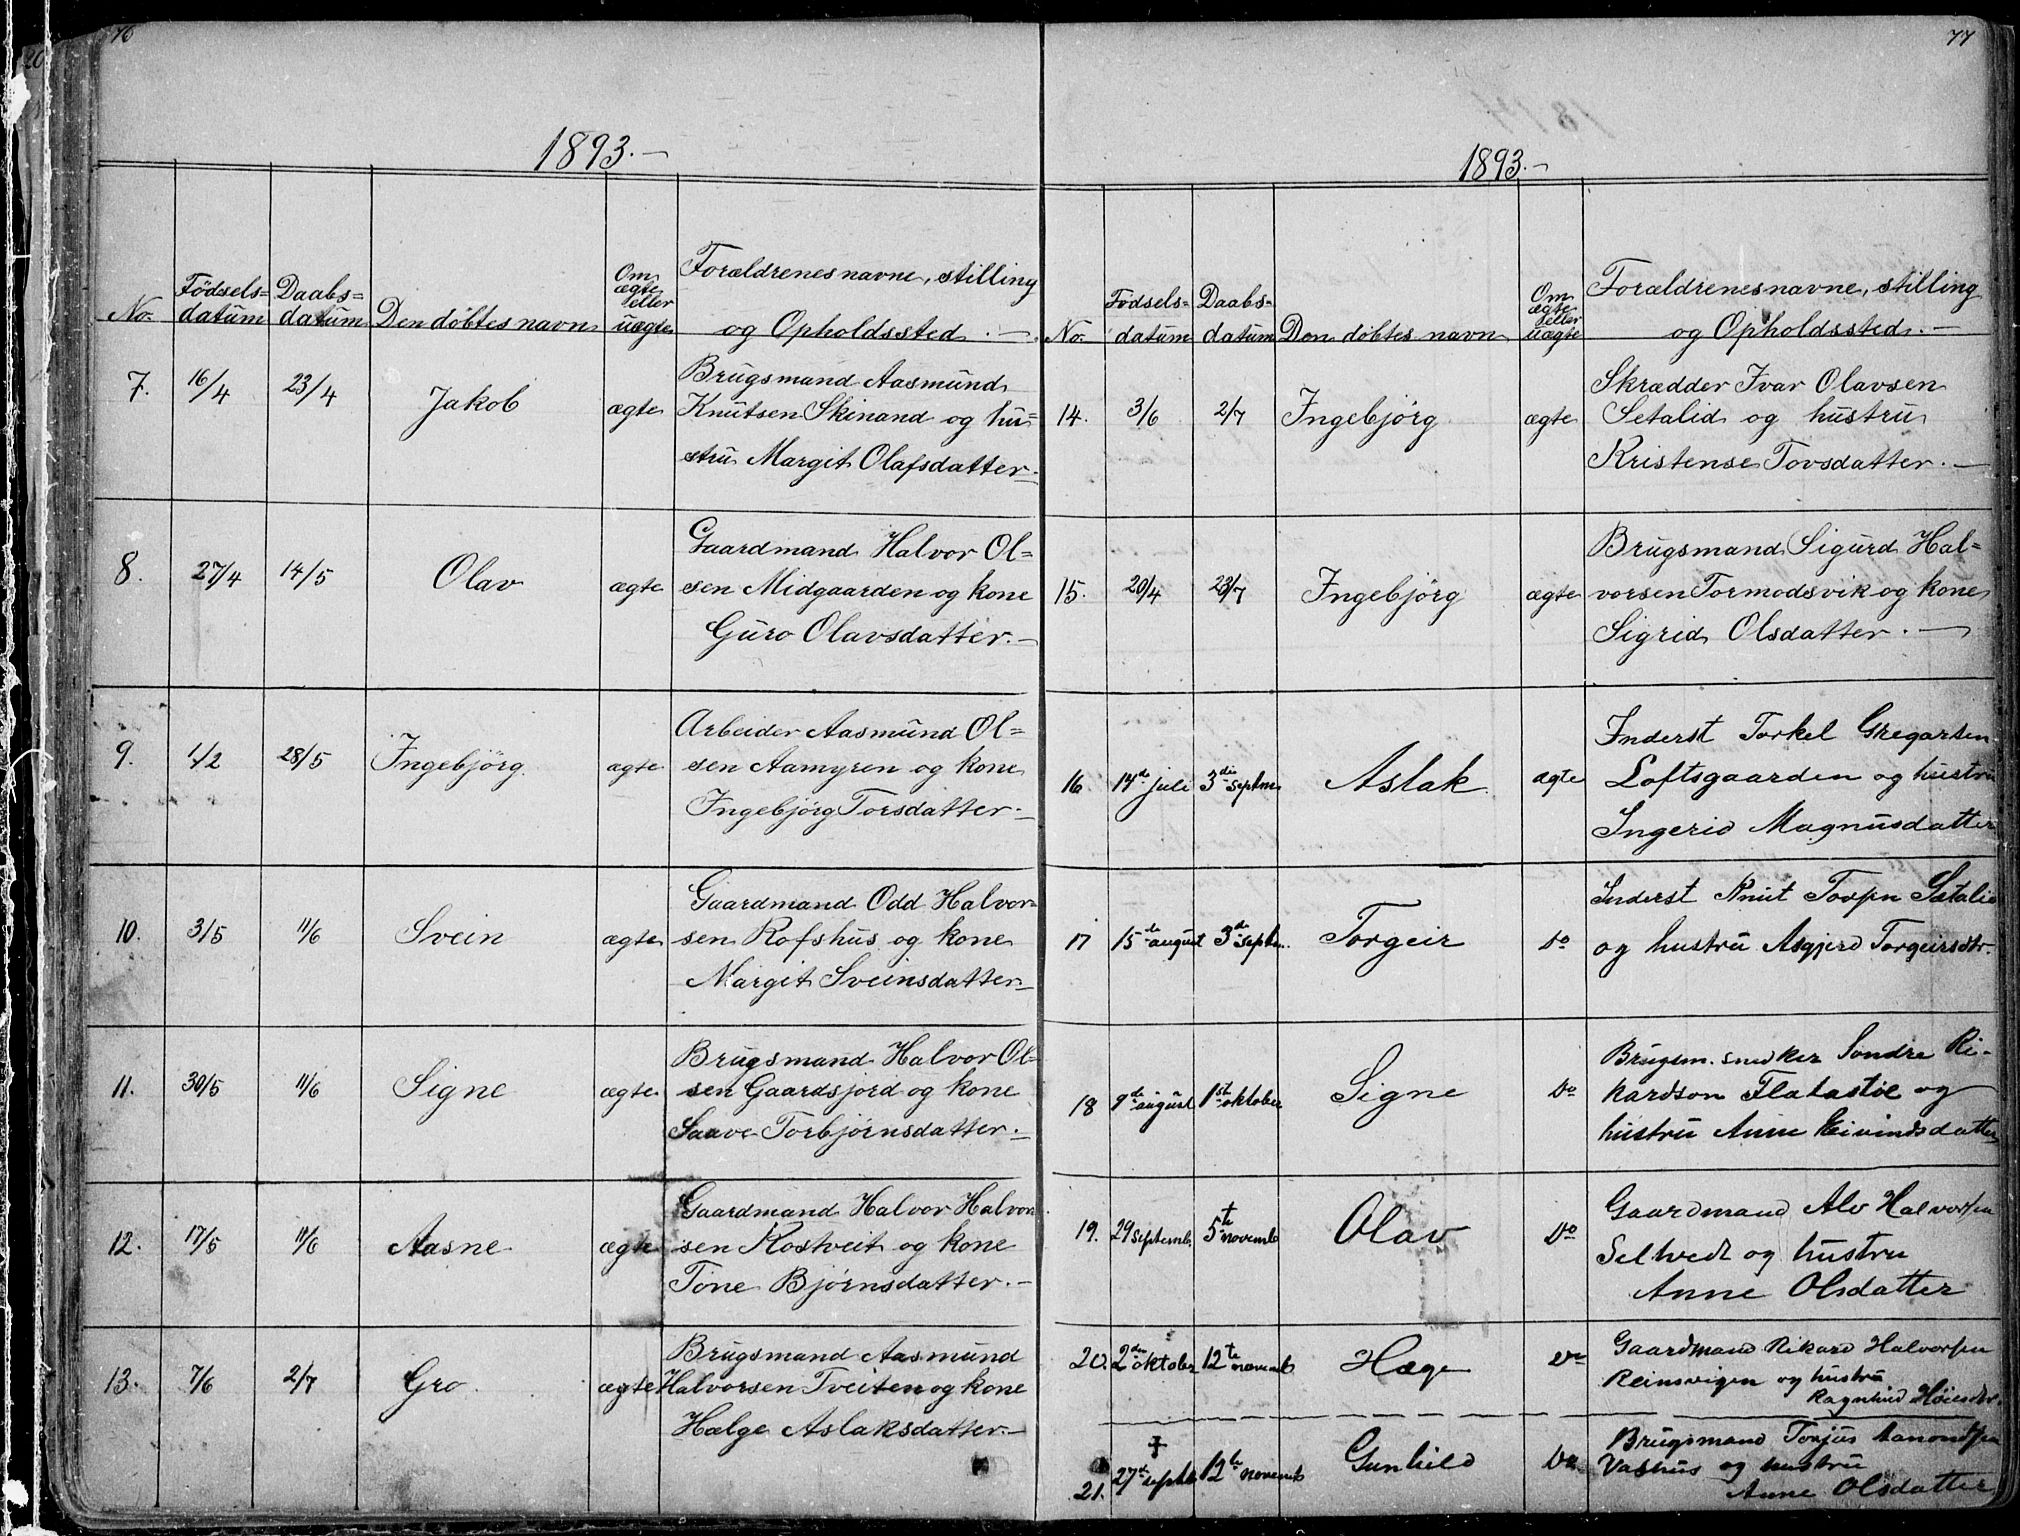 76
1893.—
No.
Fødsels=
datum
Daabs=
datum
Den døbtes navn
Om
ægte
eller
uægte
Forældrenes navne, stilling
og Opholdssted.—
7.
16/4
23/4
Jakob
ægte
Brugsmand Aasmund
Knutsen Skinand og hu=
stru Margit Olafsdatter.—
8.
27/4
14/5
Olav
ægte
Gaardmand Halvor Ol=
sen Midgaarden og kone
Guro Olavsdatter.—
9.
1/2
28/5
Ingebjörg
ægte
Arbeider Aasmund Ol=
sen Aamyren og kone
Ingebjörg Torsdatter.—
10.
3/5
11/6
Svein
ægte
Gaardmand Odd Halvor=
sen Rofshus og kone
Margit Sveinsdatter.—
11.
30/5
11/6
Signe
ægte
Brugsmand Halvor Ol=
sen Gaardsjord og kone
Saave Torbjørnsdatter.—
12.
17/5
11/6
Aasne
ægte
Gaardmand Halvor Halvor
sen Rostveit og kone
Tone Bjørnsdatter.—
13.
7/6
2/7
Gro
ægte
Brugsmand Aasmund
Halvorsen Tveiten og kone
Hælge Aslaksdatter.—
77
1893.—
No.
Fødsels=
datum
Daabs=
datum
Den døbtes navn
Om
ægte
eller
uægte
Forældrenes navne, stilling
og Opholdssted.—
14.
3/6
2/7
Ingebjörg
ægte
Skrædder Ivar Olavsen
Setalid og hustru
Kristense Tovsdatter.—
15.
20/4
23/7
Ingebjörg
ægte
Brugsmand Sigurd Hal=
vorsen Tormodsvik og kone
Sigrid Olsdatter.—
16
14de juli
3die septm
Aslak
ægte
Inderst Torkel Gregarsen
Loftsgaarden og hustru
Ingerid Magnusdatter
17
15de august
3die septm.
Torgeir
Do
Inderst Knut Tovsen Setalid
og hustru Asgjerd Torgeirsdtr.
18
9de august
1st oktober
Signe
Do
Brugsm. snedker Sondre Ri-
kardson Flatastöl og
hustru Anne Eivindsdatter
19.
29 septemb.
5te novemb
Olav
Do
Gaardmand Alv Halvorsen
Seltvedt og hustru
Anne Olsdatter
20.
2den oktober
12te novemb
Hæge
Do
Gaardmand Rikard Halvorsen
Reinsvigen og hustru
Ragnhild
21.
27de septb
12te novemb
Gunhild
Do
Brugsmand Torjus Aanondsen
Vashus og hustru
Anne Olsdatter